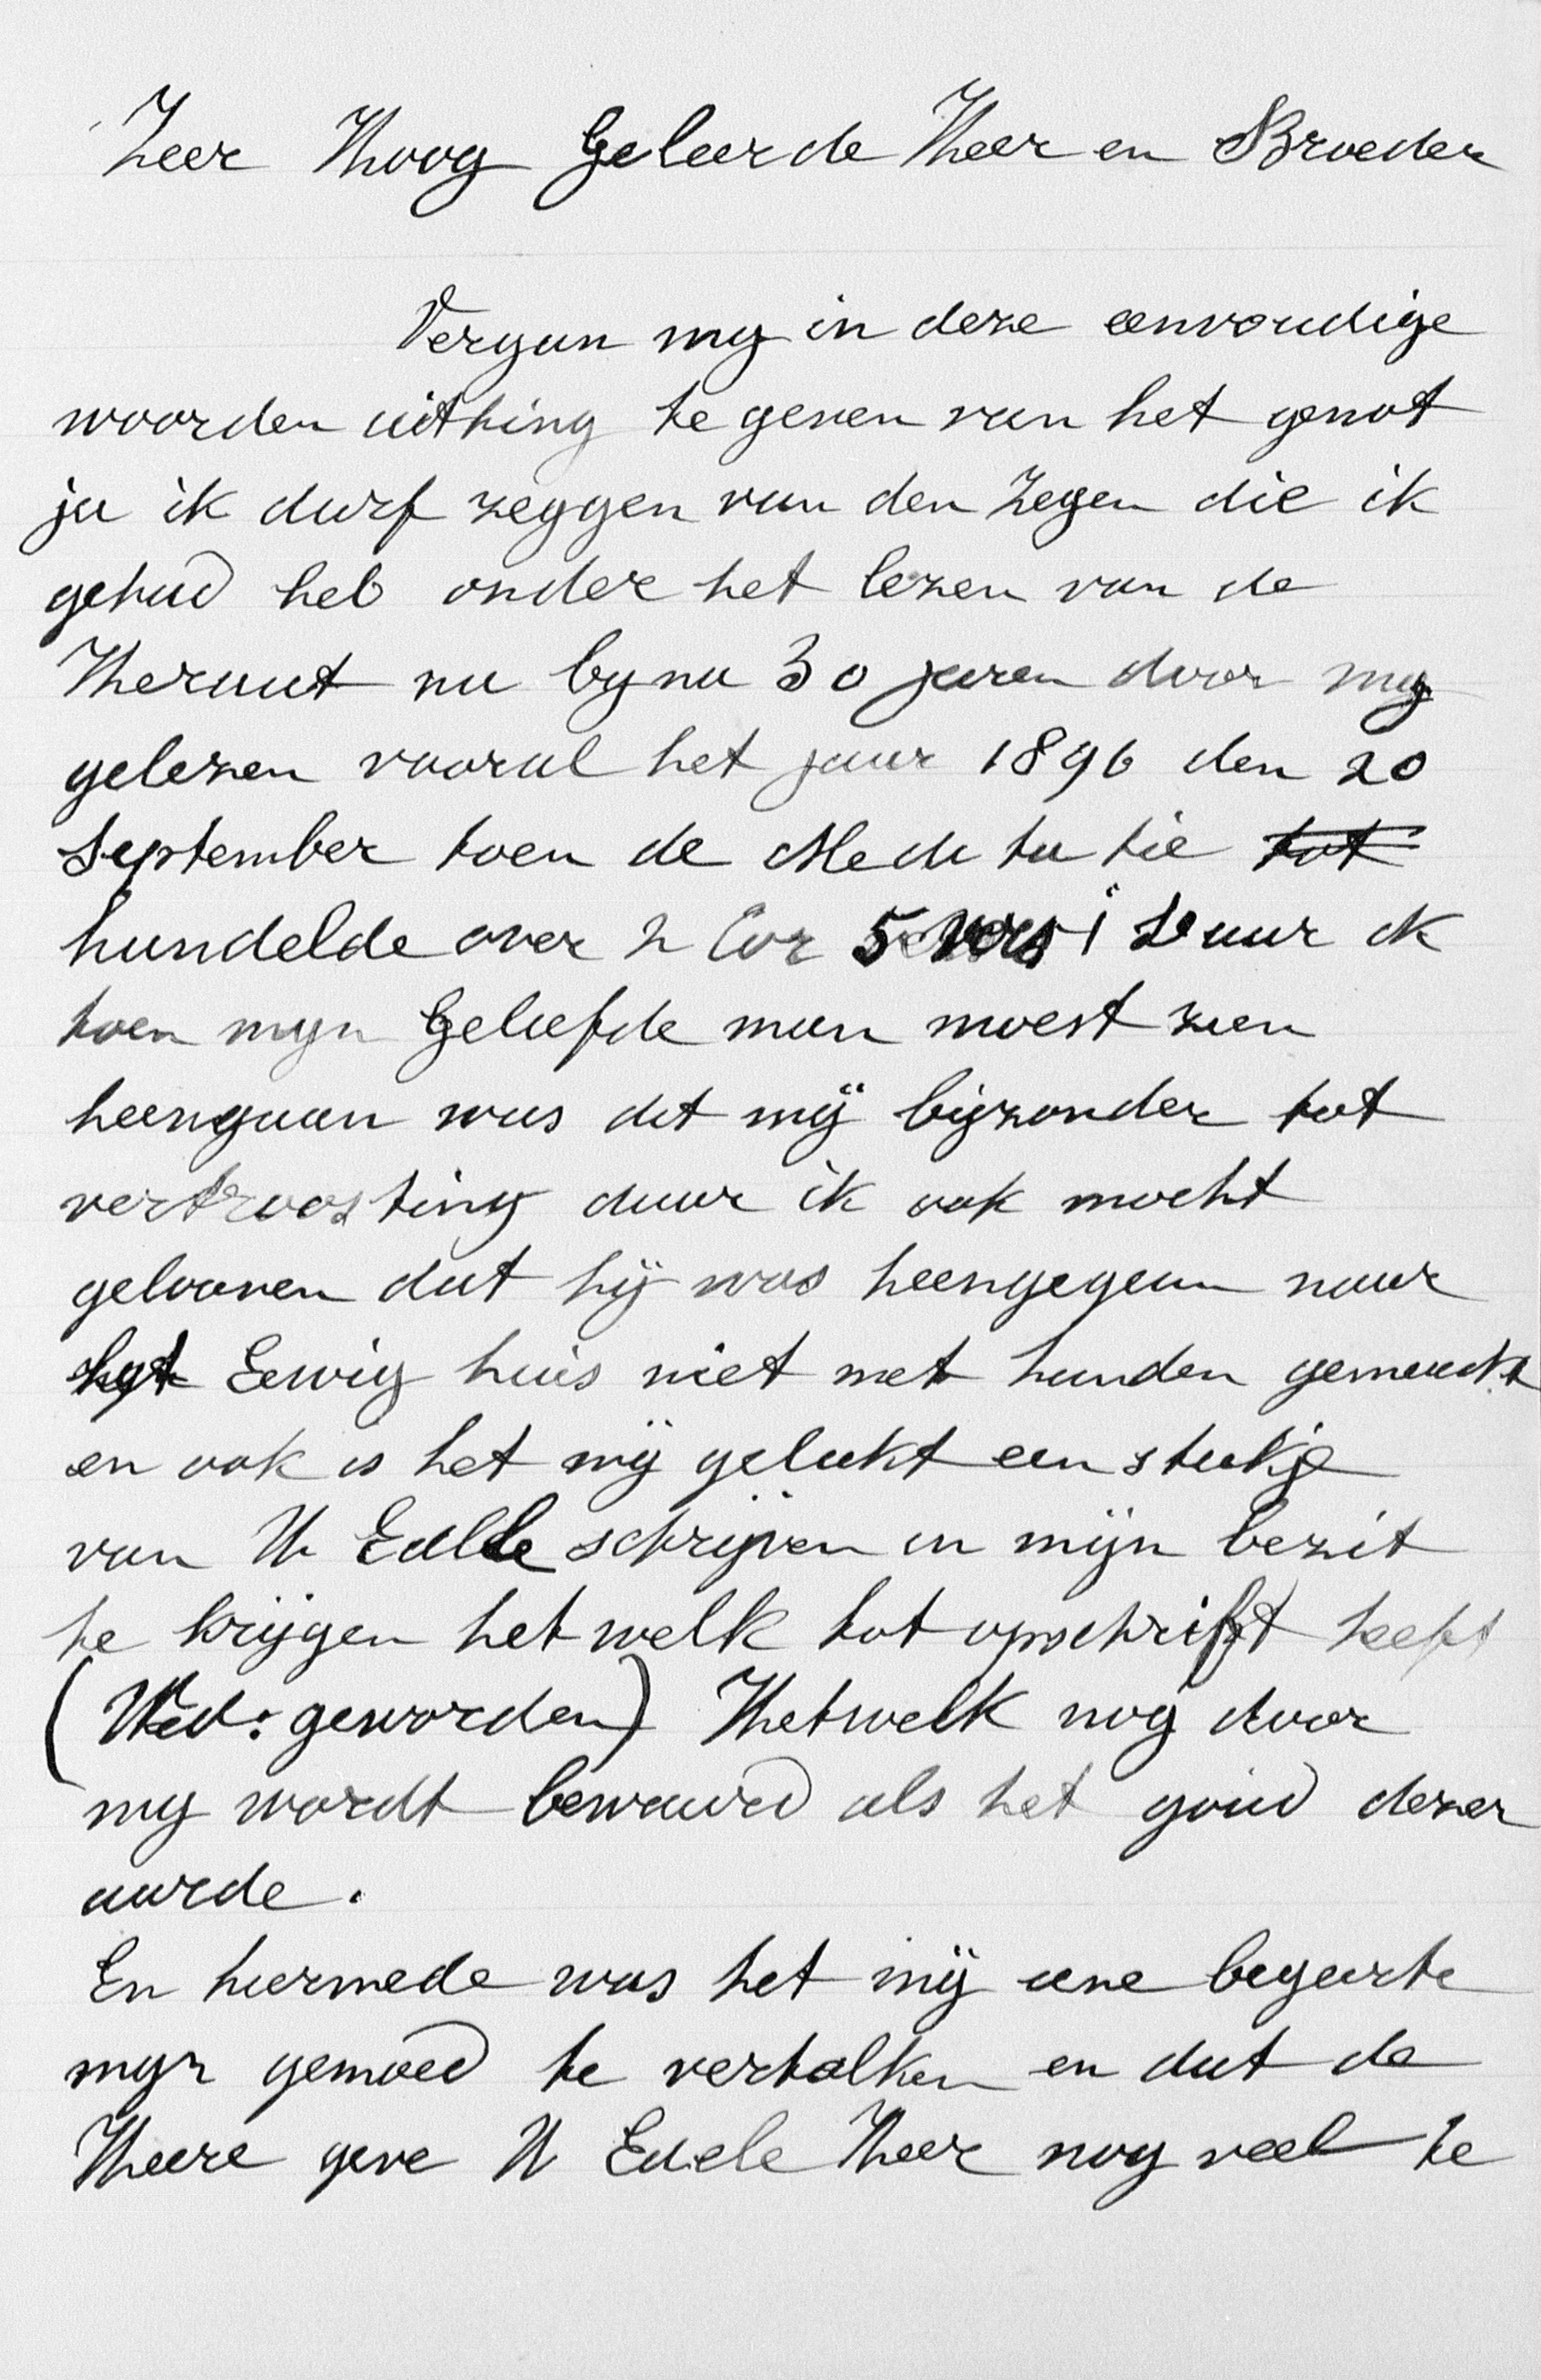 Zeer Hoog Geleerde Heer en Broeder
Vergun my in deze eenvoudige
woorden uithing te geven van het genot
ja ik durf zeggen van den Zegen die ik
gehad heb onder het lezen van de
Heraut nu byna 30 jaren door my
gelezen vooral het jaar 1896 den 20
September toen de Meditatie tot
handelde over 2 Cor 5 vers 1 Daar ik
toen myn Geliefde man moest zien
heengaan was dit mij bijzonder tot
vertroosting daar ik ook mocht
gelooven dat hij was heengegaan naar
het Eewig huis niet met handen gemaakt
en ook is het mij gelukt een stukje
van U Edele schrijven in mijn bezit
te krijgen hetwelk tot opschrift heeft
(Wed: geworden) Hetwelk nog door
my wordt bewaard als het goud dezer
aarde.
En hiermede was het mij eene begeerte
myn gemoed te vertolken en dat de
Heere geve U Edele Heer nog veel te